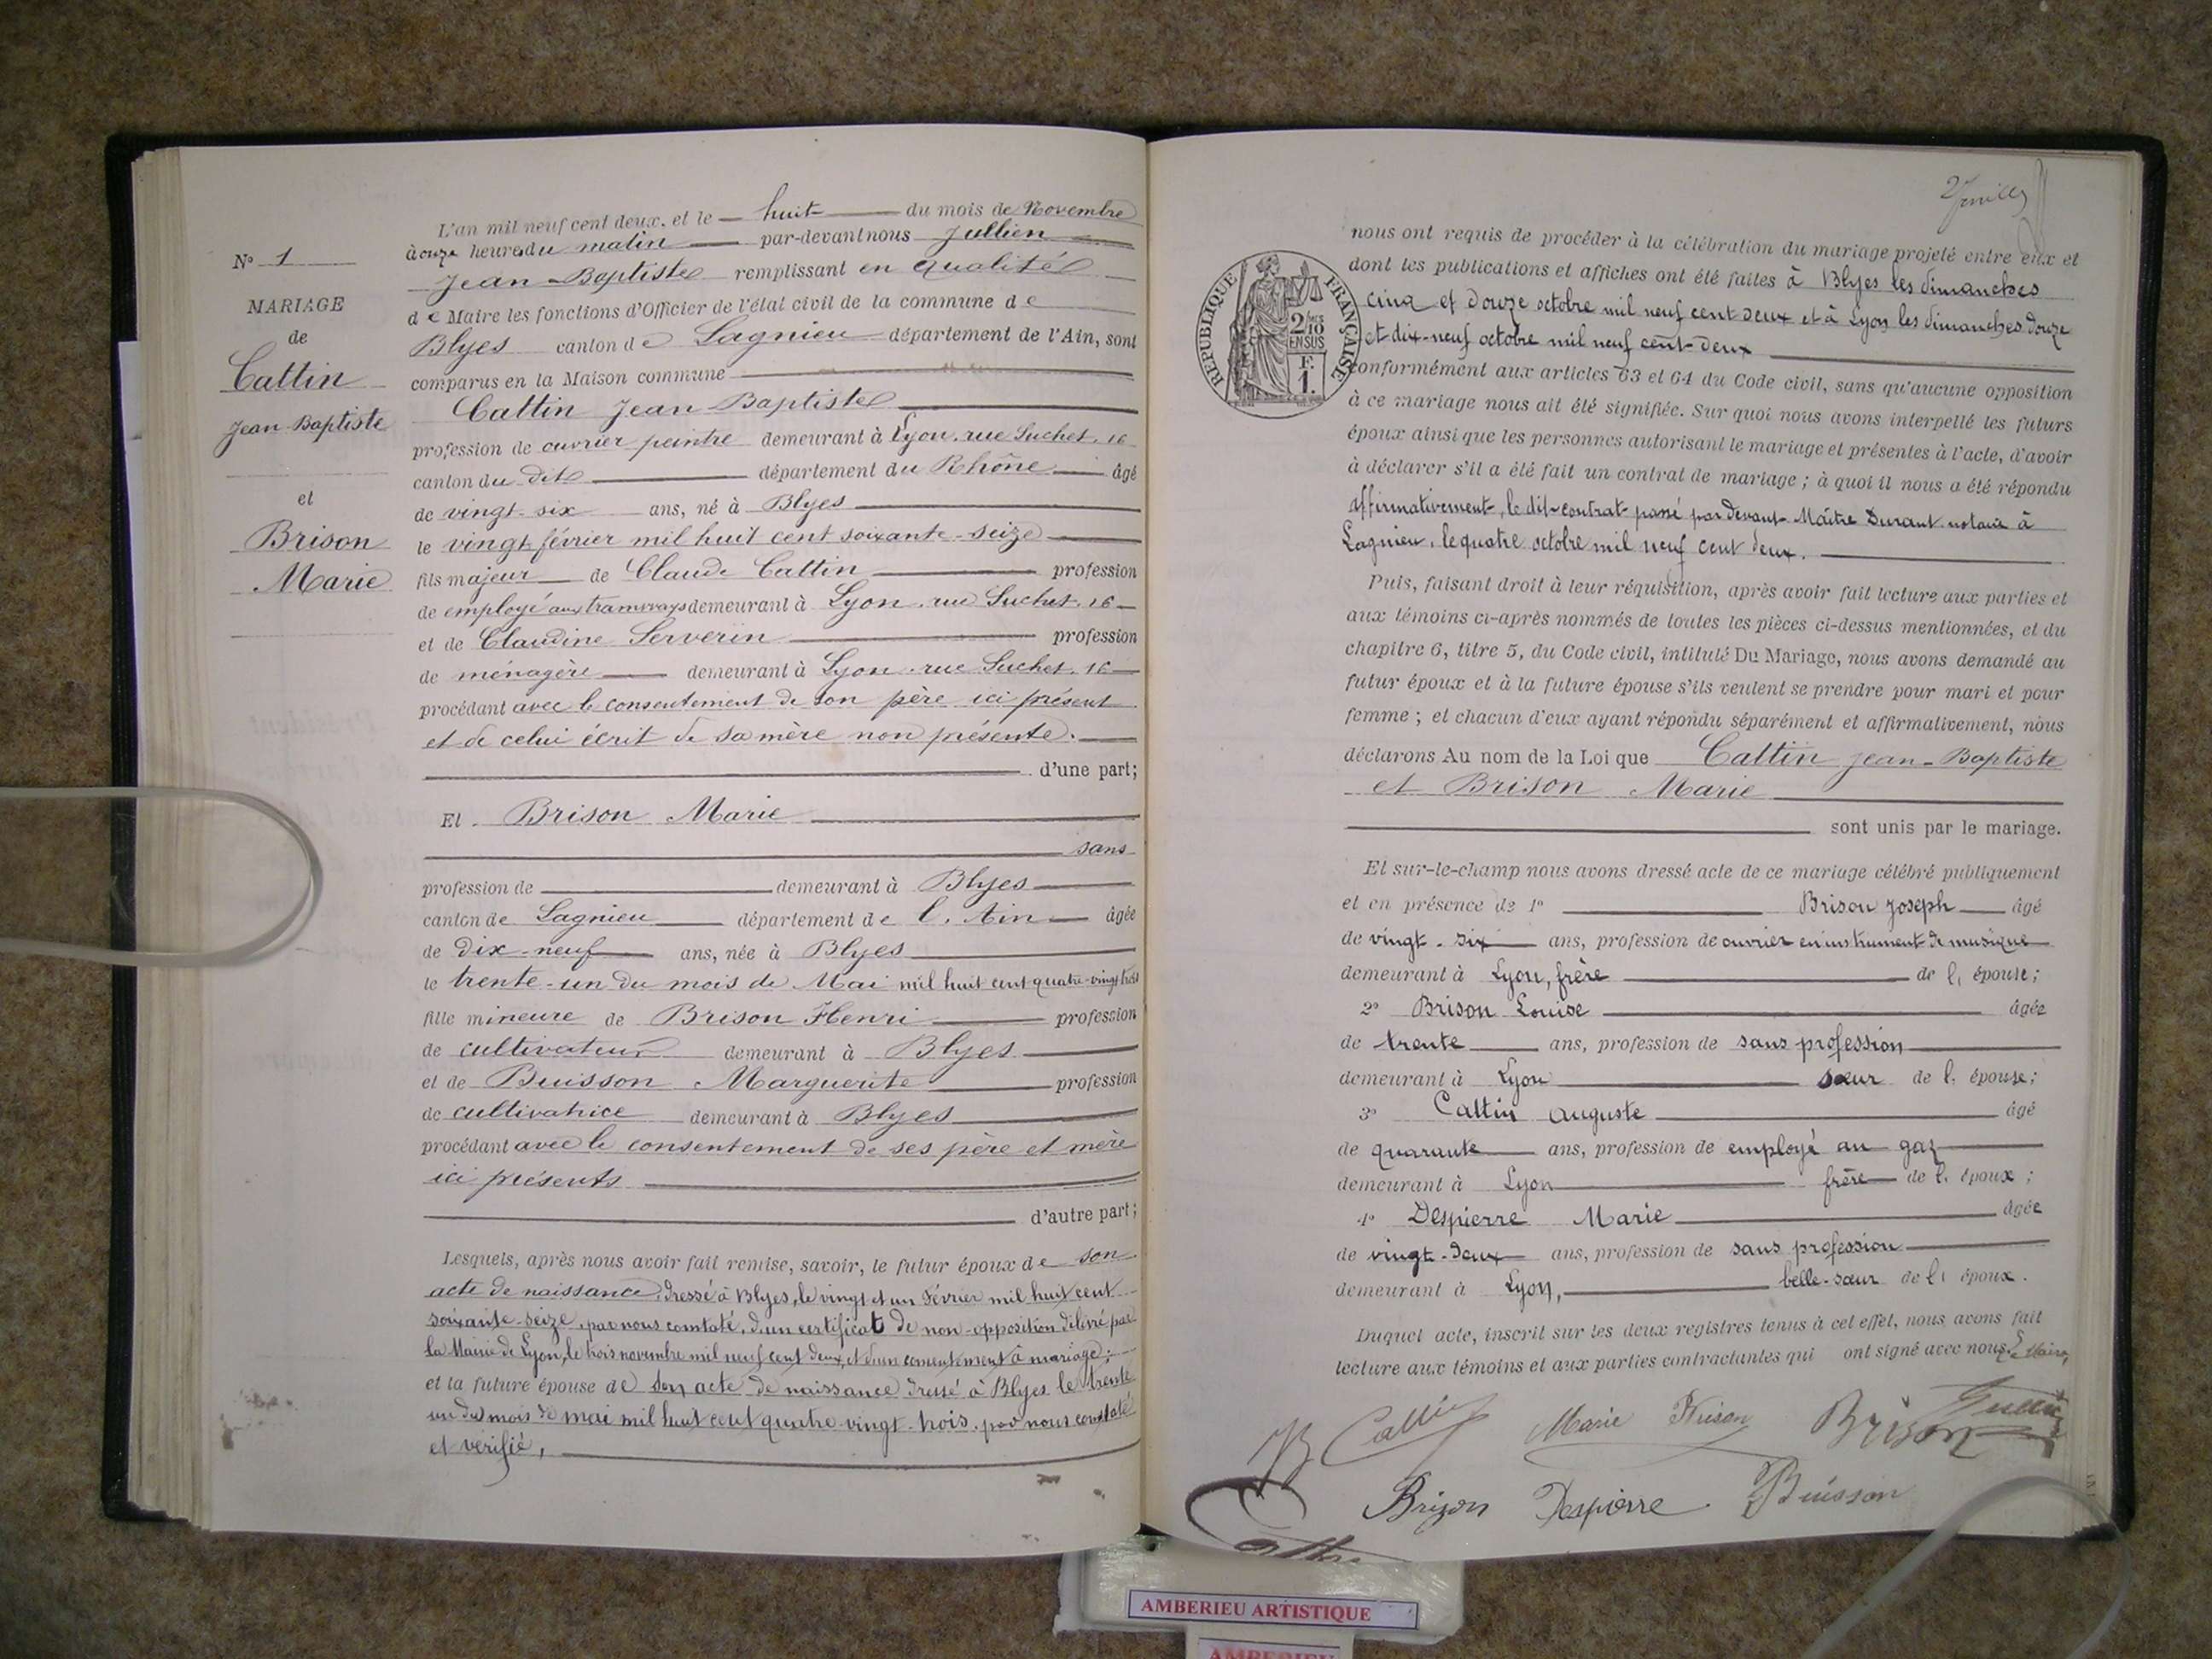 N° 1
MARIAGE
de
Cattin
Jean-Baptiste
et
Brison
Marie
L'an mil neuf cent deux, et le huit du mois de Novembre
à onze heures du matin par-devant nous Jullien
Jean-Baptiste remplissant en qualité
de Maire les fonctions d'Officier de l'état civil de la commune de
Blyes canton de Lagnieu département de l'Ain, sont
comparus en la Maison commune
Cattin Jean-Baptiste
profession de ouvrier peintre demeurant à Lyon, rue Suchet, 16
canton du dit département du Rhône âgé
de vingt-six ans, né à Blyes
le vingt février mil huit cent soixante-seize
fils majeur de Claude Cattin profession
de employé aux tramways demeurant à Lyon, rue Suchet, 16
et de Claudine Serverin profession
de ménagère demeurant à Lyon, rue Suchet, 16
procédant avec le consentement de son père ici présent
et de celui écrit de sa mère non présente.
d'une part;
Et Brison Marie
sans
profession de demeurant à Blyes
canton de Lagnieu département de l'Ain âgée
de dix-neuf ans, née à Blyes
le trente-un du mois de Mai mil huit cent quatre-vingt trois
fille mineure de Brison Henri profession
de cultivateur demeurant à Blyes
et de Buisson Marguerite profession
de cultivatrice demeurant à Blyes
procédant avec le consentement de ses père et mère
ici présents
d'autre part;
Lesquels, après nous avoir fait remise, savoir, le futur époux de son
acte de naissance, dressé à Blyes, le vingt et un Février mil huit cent
soixante-seize, par nous constaté, d'un certificat de non-opposition délivré par
la Mairie de Lyon, le trois novembre mil neuf cent deux, et d'un consentement à mariage;
et la future épouse de son acte de naissance dressé à Blyes le trente
un du mois de mai mil huit cent quatre-vingt-trois, par nous constaté
et vérifié,
RÉPUBLIQUE FRANÇAISE
2/10 EN SUS
F. 1.
nous ont requis de procéder à la célébration du mariage projeté entre eux et
dont les publications et affiches ont été faites à Blyes les dimanches
cinq et douze octobre mil neuf cent deux et à Lyon les dimanches douze
et dix-neuf octobre mil neuf cent-deux
conformément aux articles 63 et 64 du Code civil, sans qu'aucune opposition
à ce mariage nous ait été signifiée. Sur quoi nous avons interpellé les futurs
époux ainsi que les personnes autorisant le mariage et présentes à l'acte, d'avoir
à déclarer s'il a été fait un contrat de mariage; à quoi il nous a été répondu
affirmativement, le dit contrat passé par devant Maître Durant notaire à
Lagnieu, le quatre octobre mil neuf cent deux.
Puis, faisant droit à leur réquisition, après avoir fait lecture aux parties et
aux témoins ci-après nommés de toutes les pièces ci-dessus mentionnées, et du
chapitre 6, titre 5, du Code civil, intitulé Du Mariage, nous avons demandé au
futur époux et à la future épouse s'ils veulent se prendre pour mari et pour
femme; et chacun d'eux ayant répondu séparément et affirmativement, nous
déclarons Au nom de la Loi que Cattin Jean-Baptiste
et Brison Marie
sont unis par le mariage.
Et sur-le-champ nous avons dressé acte de ce mariage célébré publiquement
et en présence de 1° Brison Joseph âgé
de vingt-six ans, profession de ouvrier en instrument de musique
demeurant à Lyon, frère de l'épouse;
2° Brison Louise âgée
de trente ans, profession de sans profession
demeurant à Lyon sœur de l'épouse;
3° Cattin Auguste âgé
de quarante ans, profession de employé au gaz
demeurant à Lyon frère de l'époux;
4° Despierre Marie âgée
de vingt-deux ans, profession de sans profession
demeurant à Lyon, belle-sœur de l'époux.
Duquel acte, inscrit sur les deux registres tenus à cet effet, nous avons fait
lecture aux témoins et aux parties contractantes qui ont signé avec nous. Le Maire,
JB Cattin Marie Brison Brison Jullien
Brison Despierre Buisson
Cattin
AMBERIEU ARTISTIQUE
AMBERIEU